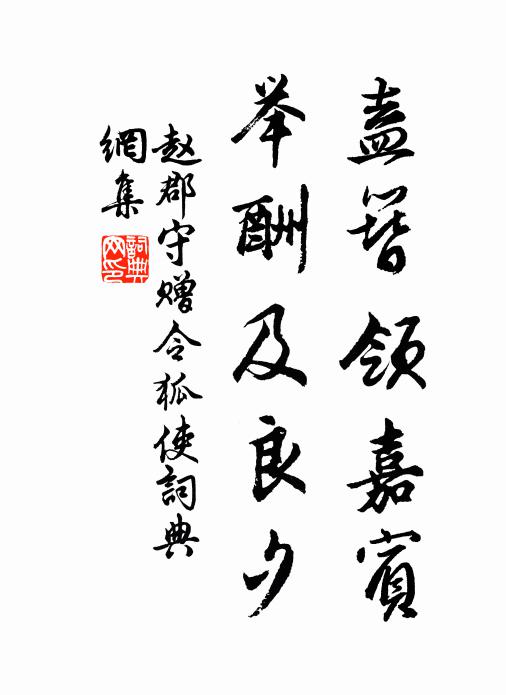 盍簪領嘉賓
举酬及良夕
赵郡守赠令狐使詞典
網集
詞典网印